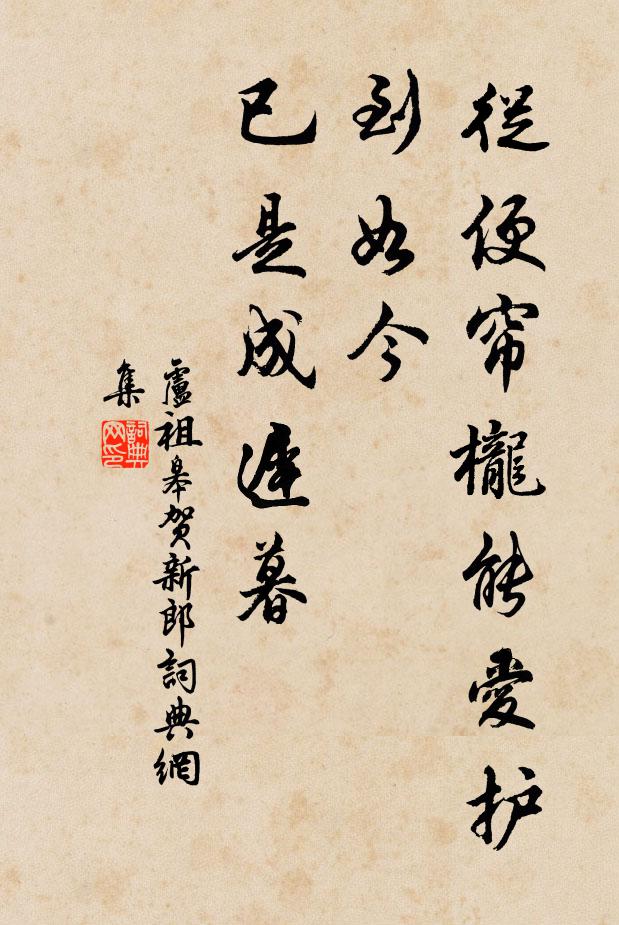 從便帘櫳能愛护
到如今
已是成遲暮
盧祖皋贺新郎詞典網
集
詞典
网印